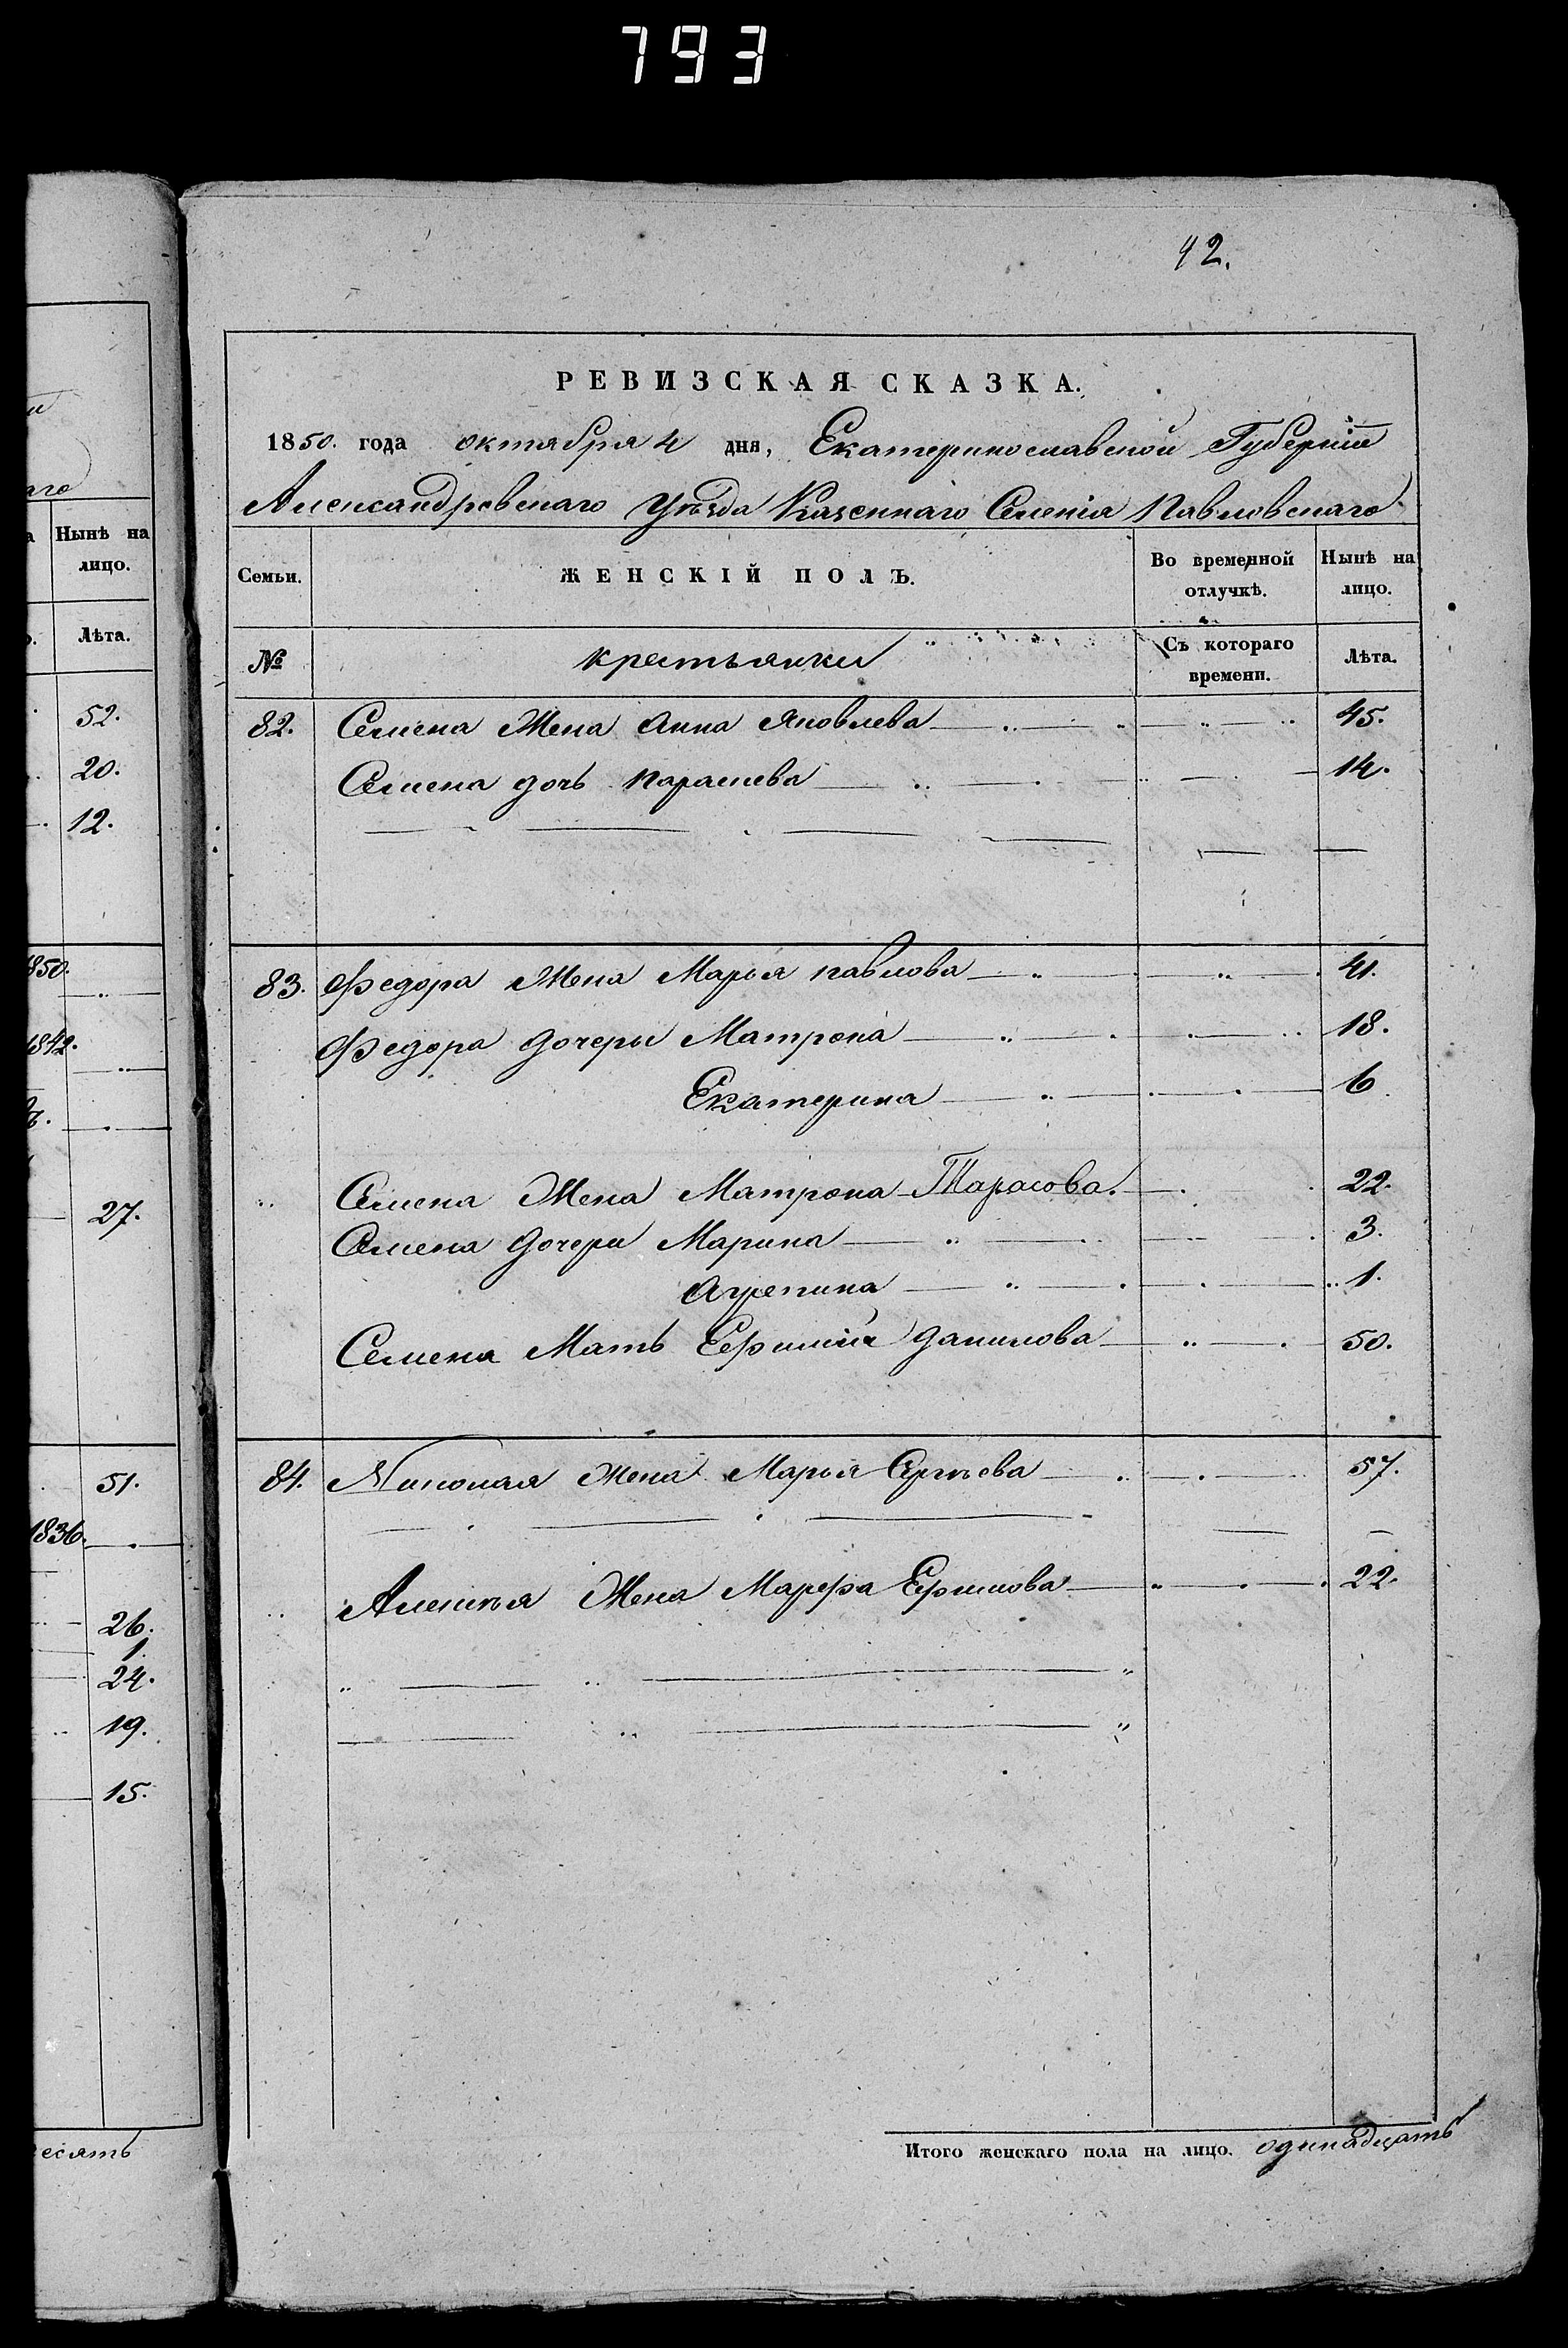 793
42.
РЕВИЗСКАЯ СКАЗКА.
1850. года октября 4 дня, Екатеринославской Губерніи
Александровскаго Уѣзда Казеннаго Селенія Павловскаго
Семьи. ЖЕНСКІЙ ПОЛЪ. Во временной отлучкѣ. Нынѣ на лицо.
№ крестьянки Съ котораго времени. Лѣта.
82. Семена Жена Анна Яковлева 45.
Семена дочь Параскева 14.
83. Федора Жена Марья Павлова 41.
Федора дочеры Матрона 18.
Екатерина 6
Семена Жена Матрона Тарасова. 22.
Семена дочери Марина 3.
Агрепина 1.
Семена Мать Ефимія Данилова 50.
84. Николая Жена Марья Сергѣева 57.
Алексѣя Жена Марфа Ефимова 22.
Итого женскаго пола на лицо. одинадцать
Нынѣ на
лицо.
Лѣта.
52.
20.
12.
1850.
1842.
27.
51.
1836.
26.
1.
24.
19.
15.